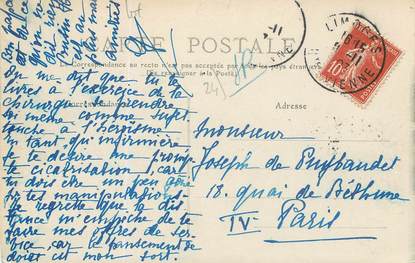 CARTE POSTALE
La Correspondance au recto n'est pas acceptée par tous les pays étrangers.
Correspondance
Adresse
LIMOGES
VIENNE
10
On me dit que tu te
livres à l'exercice de la
chirurgie. Prendre
soi même comme sujet
touche à l'héroïsme
en tant qu'infirmière
je te désire une prompte
cicatrisation, car
tu dois être un peu gêné
ds tes manipulations.
Je regrette que la dis
tance m'empêche de te
faire mes offres de ser-
vice, car le pansement de
doigt est mon fort.
Monsieur
Joseph de Puybaudet
18. quai de Béthune
IV Paris